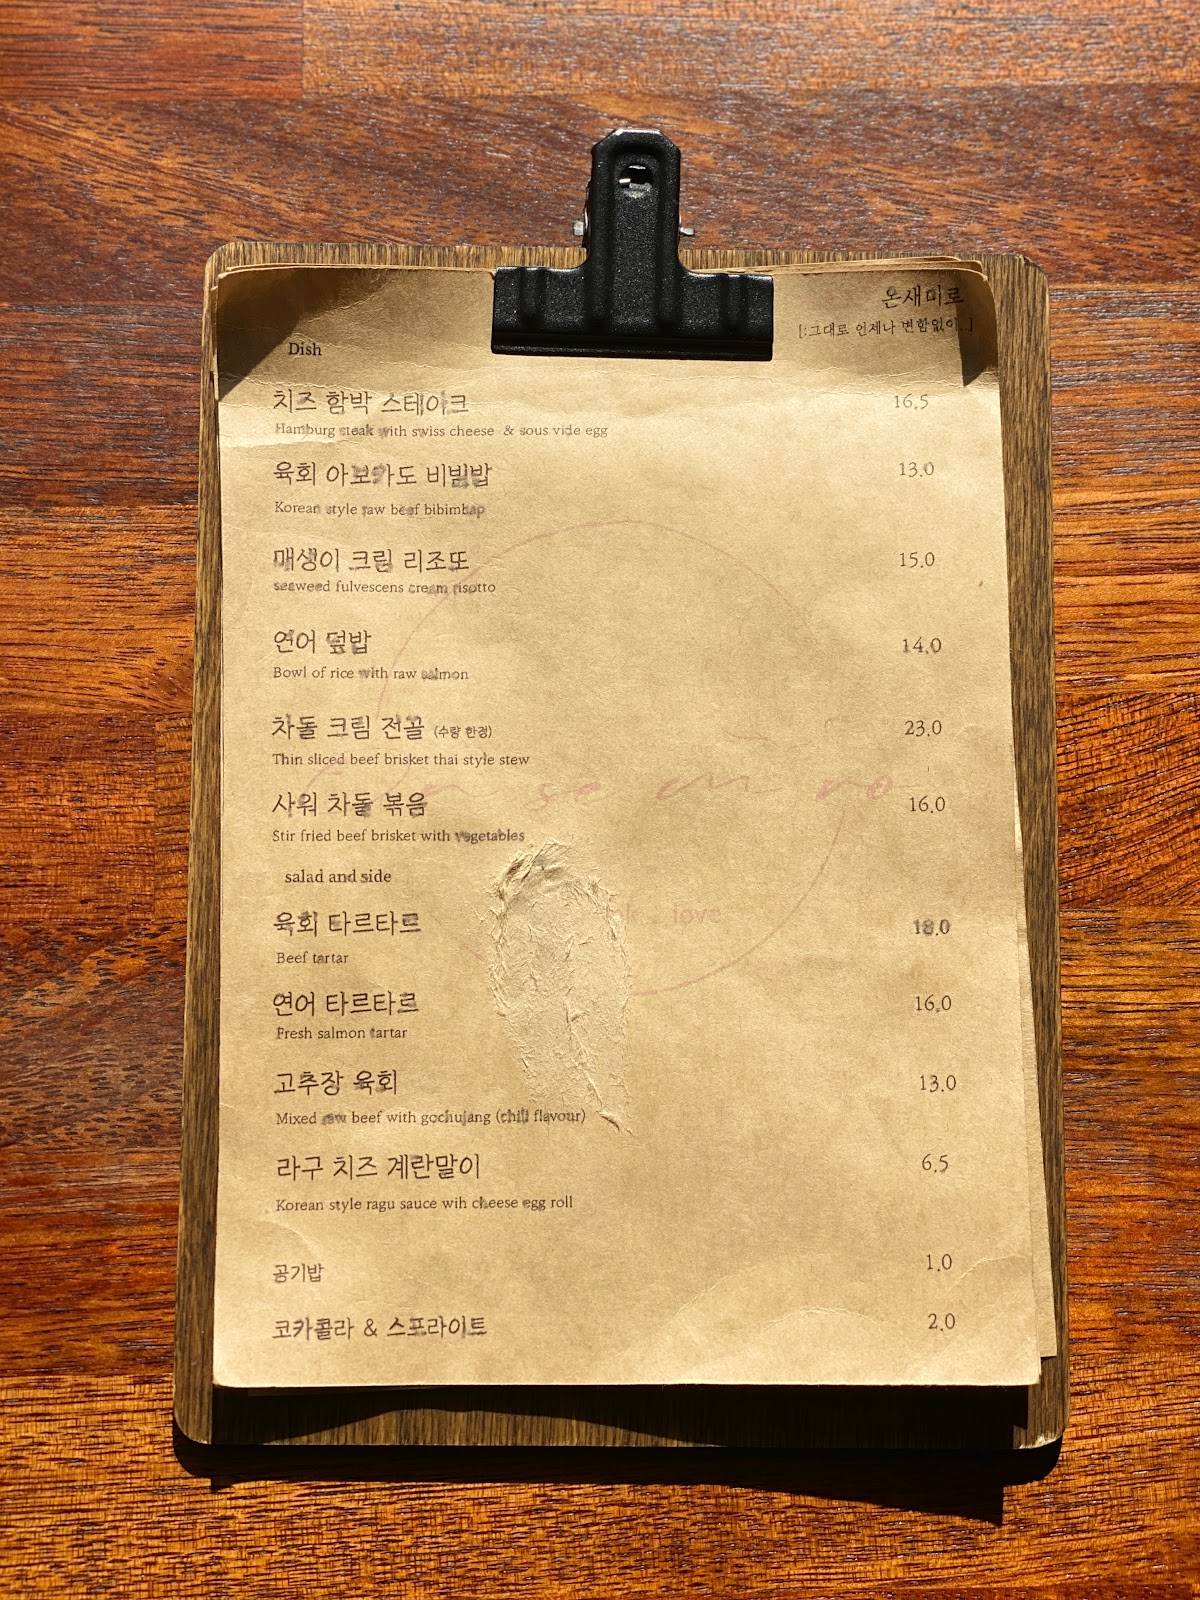 온새미로
[:그대로 언제나 변함없이..]
Dish
치즈 함박 스테이크 16.5
Hamburg steak with swiss cheese & sous vide egg
육회 아보카도 비빔밥 13.0
Korean style raw beef bibimbap
매생이 크림 리조또 15.0
seaweed fulvescens cream risotto
연어 덮밥 14.0
Bowl of rice with raw salmon
차돌 크림 전골 (수량 한정) 23.0
Thin sliced beef brisket thai style stew
사워 차돌 볶음 16.0
Stir fried beef brisket with vegetables
salad and side
love
육회 타르타르 18.0
Beef tartar
연어 타르타르 16.0
Fresh salmon tartar
고추장 육회 13.0
Mixed raw beef with gochujang (chili flavour)
라구 치즈 계란말이 6.5
Korean style ragu sauce wih cheese egg roll
공기밥 1.0
코카콜라 & 스프라이트 2.0